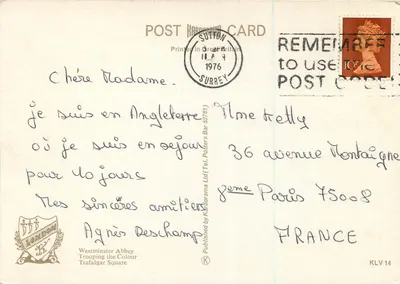 POST CARD
Printed in Great Britain
SUTTON
1976
SURREY
REMEMBER
to use the
POST CODE
Chére Madame.
je suis en Angleterre
où je suis en séjour
pour 10 jours
Mes sincères amitiés
Agnès Deschamp
Mme Kelly
36 avenue Montaigne
8eme Paris 75008
FRANCE
Published by Kardorama Ltd (Tel. Potters Bar 50781)
LONDON
Westminster Abbey
Trooping the Colour
Trafalgar Square
KLV 14